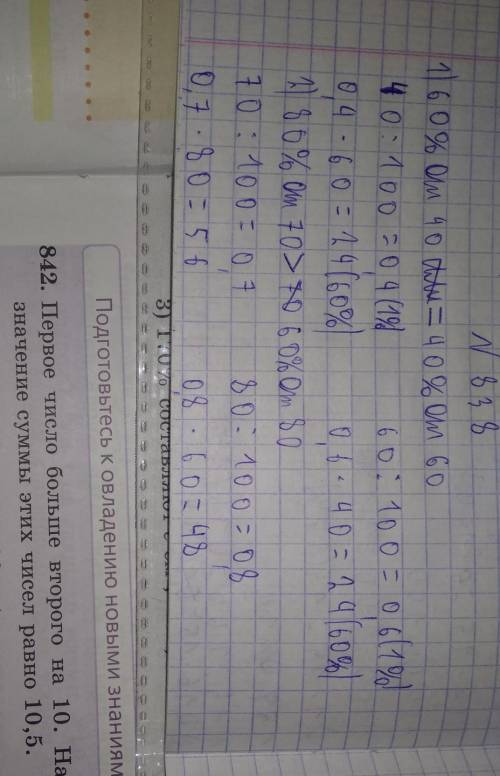 N 838
1) 60% от 40 = 40% от 60
40 : 100 = 0,4 (1%) 60 : 100 = 0,6 (1%)
0,4 · 60 = 24 (60%) 0,6 · 40 = 24 (60%)
2) 80% от 70 > 60% от 80
70 : 100 = 0,7 80 : 100 = 0,8
0,7 · 80 = 56 0,8 · 60 = 48
Подготовьтесь к овладению новыми знаниям
842. Первое число больше второго на 10. На
значение суммы этих чисел равно 10,5.